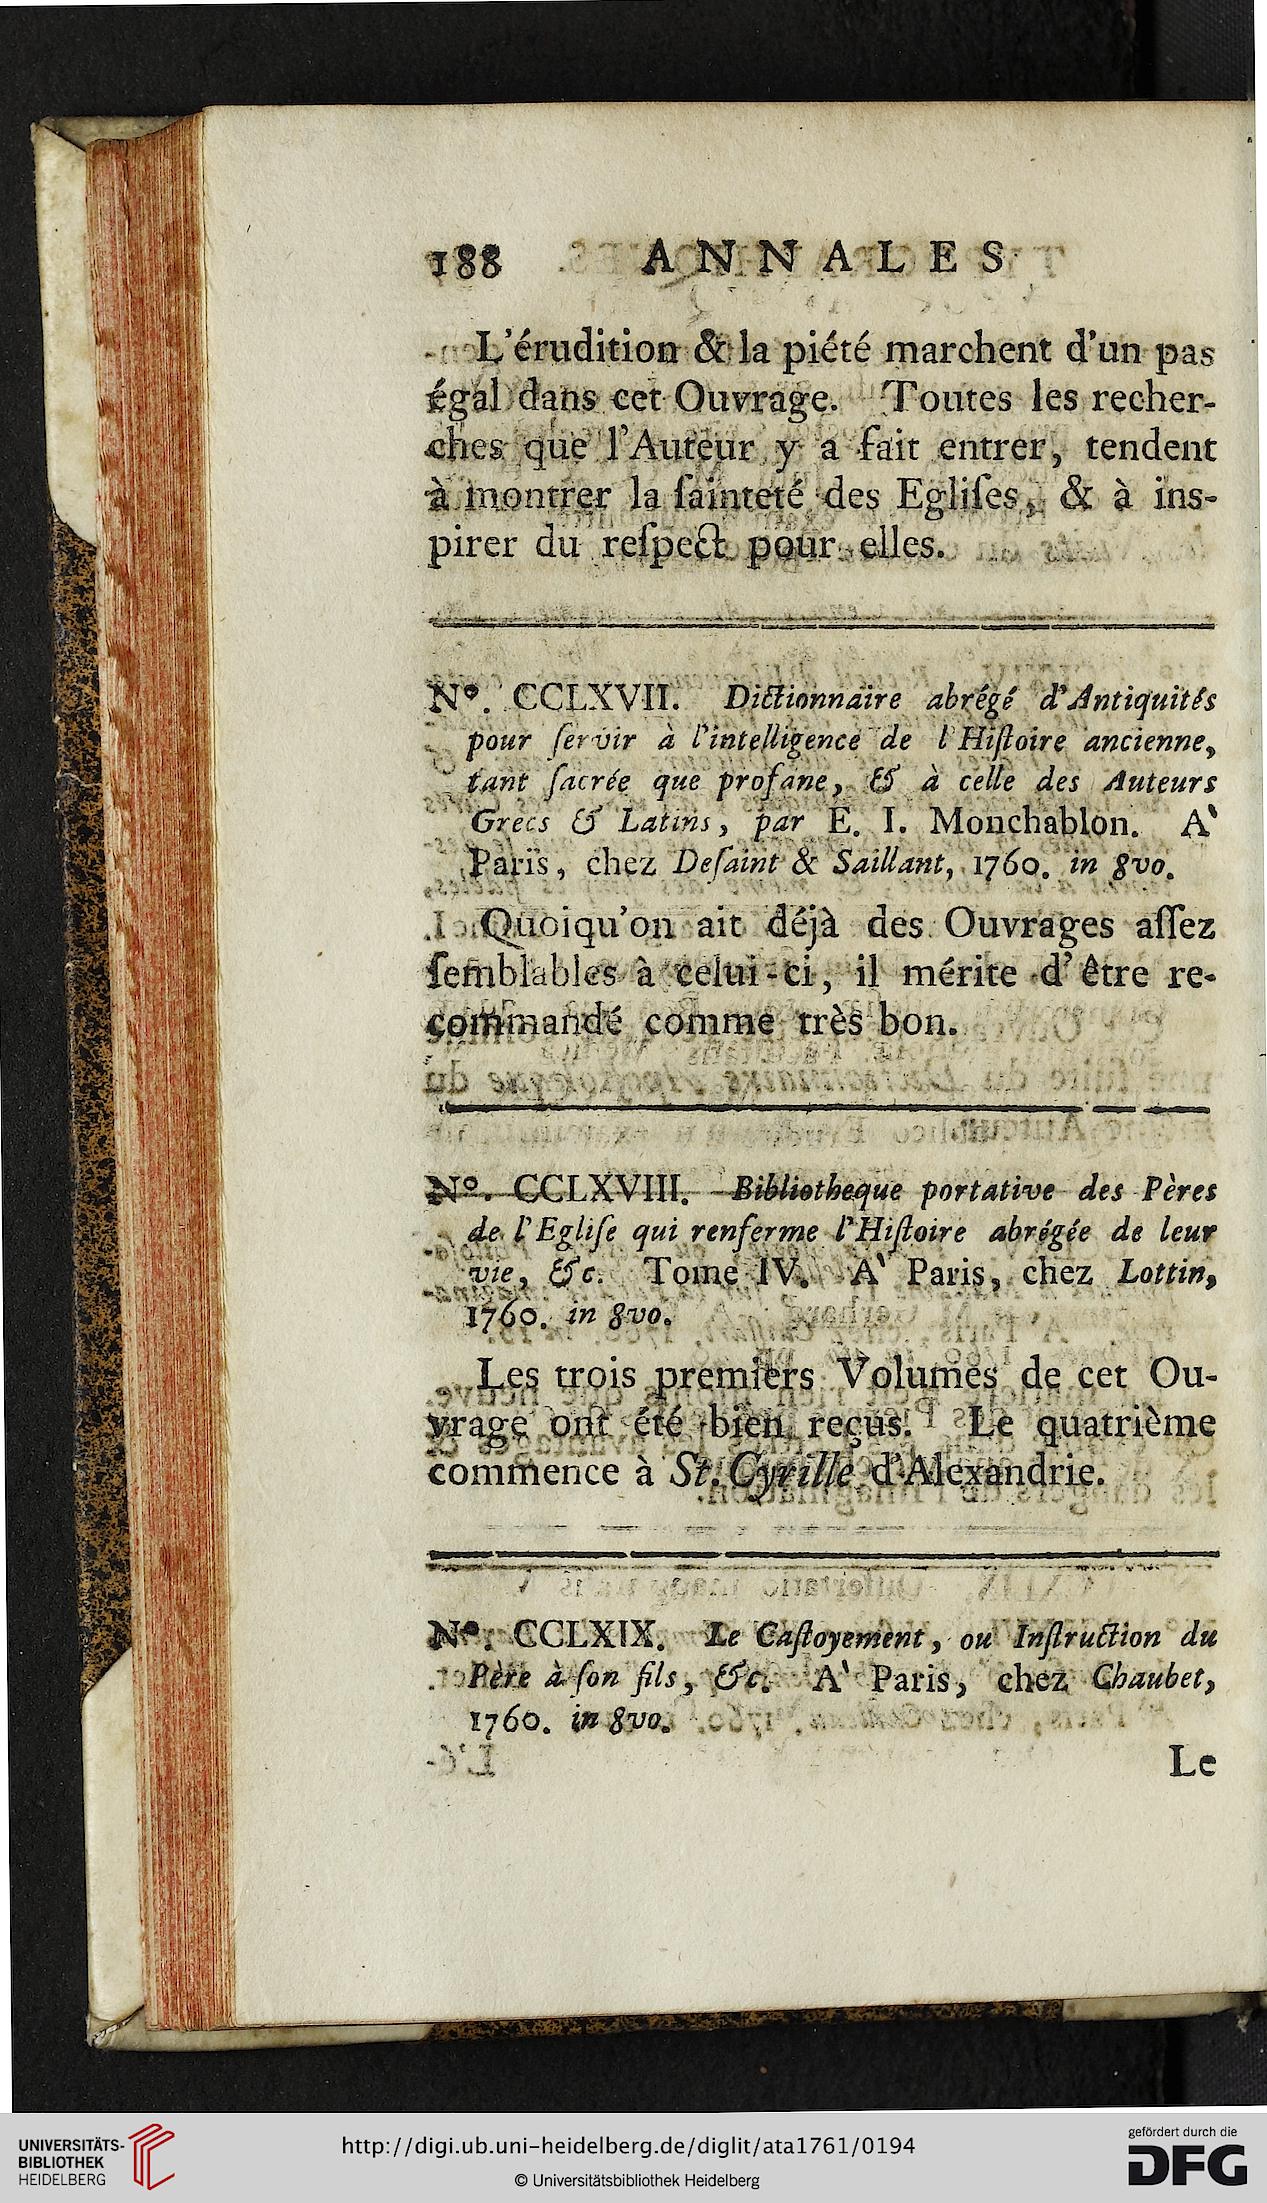 188 ANNALES
L'érudition & la piété marchent d'un pas
égal dans cet Ouvrage. Toutes les recher-
ches que l'Auteur y a fait entrer, tendent
à montrer la ſainteté des Egliſes, & à ins-
pirer du reſpect pour elles.
Nº. CCLXVII. Dictionnaire abrégé d'Antiquités
pour ſervir à l'intelligence de l'Hiſtoire ancienne,
tant ſacrée que profane, & à celle des Auteurs
Grecs & Latins, par E. I. Monchablon. A'
Paris, chez Deſaint & Saillant, 1760. in 8vo.
Quoiqu'on ait déjà des Ouvrages aſſez
ſemblables à celui-ci, il mérite d'être re-
commandé comme très bon.
Nº. CCLXVIII. Bibliotheque portative des Pères
de l'Egliſe qui renferme l'Hiſtoire abrégée de leur
vie, &c. Tome IV. A' Paris, chez Lottin,
1760. in 8vo.
Les trois premiers Volumes de cet Ou-
vrage ont été bien reçus. Le quatrième
commence à St. Cyrille d'Alexandrie.
Nº. CCLXIX. Le Caſtoyement, ou Inſtruction du
Père à ſon fils, &c. A' Paris, chez Chaubet,
1760. in 8vo.
Le
UNIVERSITÄTS-
BIBLIOTHEK
HEIDELBERG
http://digi.ub.uni-heidelberg.de/diglit/ata1761/0194
© Universitätsbibliothek Heidelberg
gefördert durch die
DFG